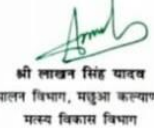 श्री लाखन सिंह यादव
पालन विभाग, मछुआ कल्याण
मत्स्य विकास विभाग